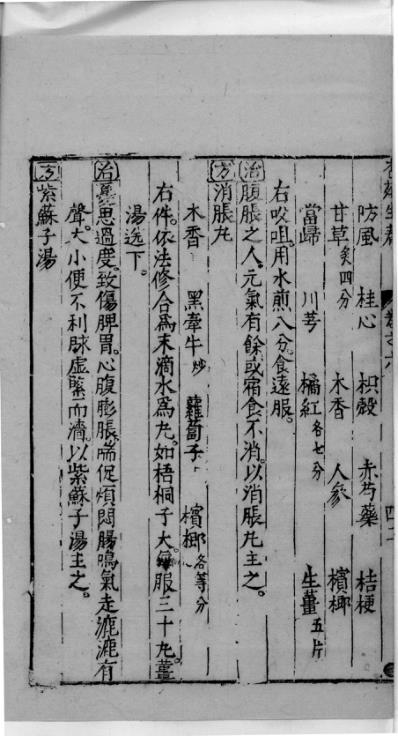 卷之六
四十二
防風 桂心 枳殼 赤芍藥 桔梗
甘草炙四分 木香 人參 檳榔
當歸 川芎 橘紅各七分 生薑五片
右㕮咀。用水煎八分。食遠服。
治腹脹之人。元氣有餘。或宿食不消。以消脹丸主之。
方消脹丸
木香 黑牽牛炒 蘿蔔子 檳榔各等分
右件。依法修合爲末。滴水爲丸。如梧桐子大。每服三十丸。薑
湯送下。
治憂思過度。致傷脾胃。心腹膨脹。喘促煩悶。腸鳴氣走。漉漉有
聲。大小便不利。脉虛緊而濇。以紫蘇子湯主之。
方紫蘇子湯